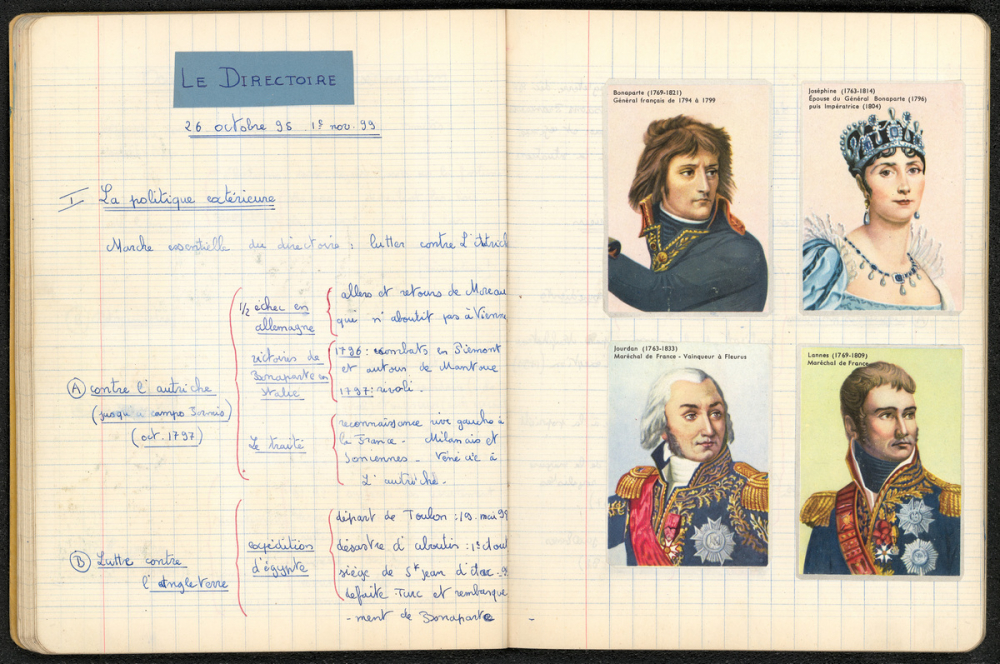 LE DIRECTOIRE
26 octobre 95 . 1º nov. 99
I La politique extérieure
Marche essentielle du directoire : lutter contre L'Autrich
A contre l'autriche
(jusqu'à campo
(oct. 1797)
1/2 échec en
allemagne
allers et retours de Moreau
qui n'aboutit pas à Vienne
victoires de
Bonaparte en
Italie
1796 : combats en Piémont
et autour de Mantoue
1797 : rivoli.
Le traité
reconnaissance rive gauche à
la France - Milanais et
- Vénécie à
L'autriche.
B Lutte contre
l'Angleterre
expédition
d'égypte
départ de Toulon : 19. mai 98
désastre d'aboukir : 1º
siège de St jean d'
defaite Turc et rembarque
-ment de Bonaparte
-
Bonaparte (1769-1821)
Général français de 1794 à 1799
Joséphine (1763-1814)
Épouse du Général Bonaparte (1796)
puis Impératrice (1804)
Jourdan (1763-1833)
Maréchal de France - Vainqueur à Fleurus
Lannes (1769-1809)
Maréchal de France